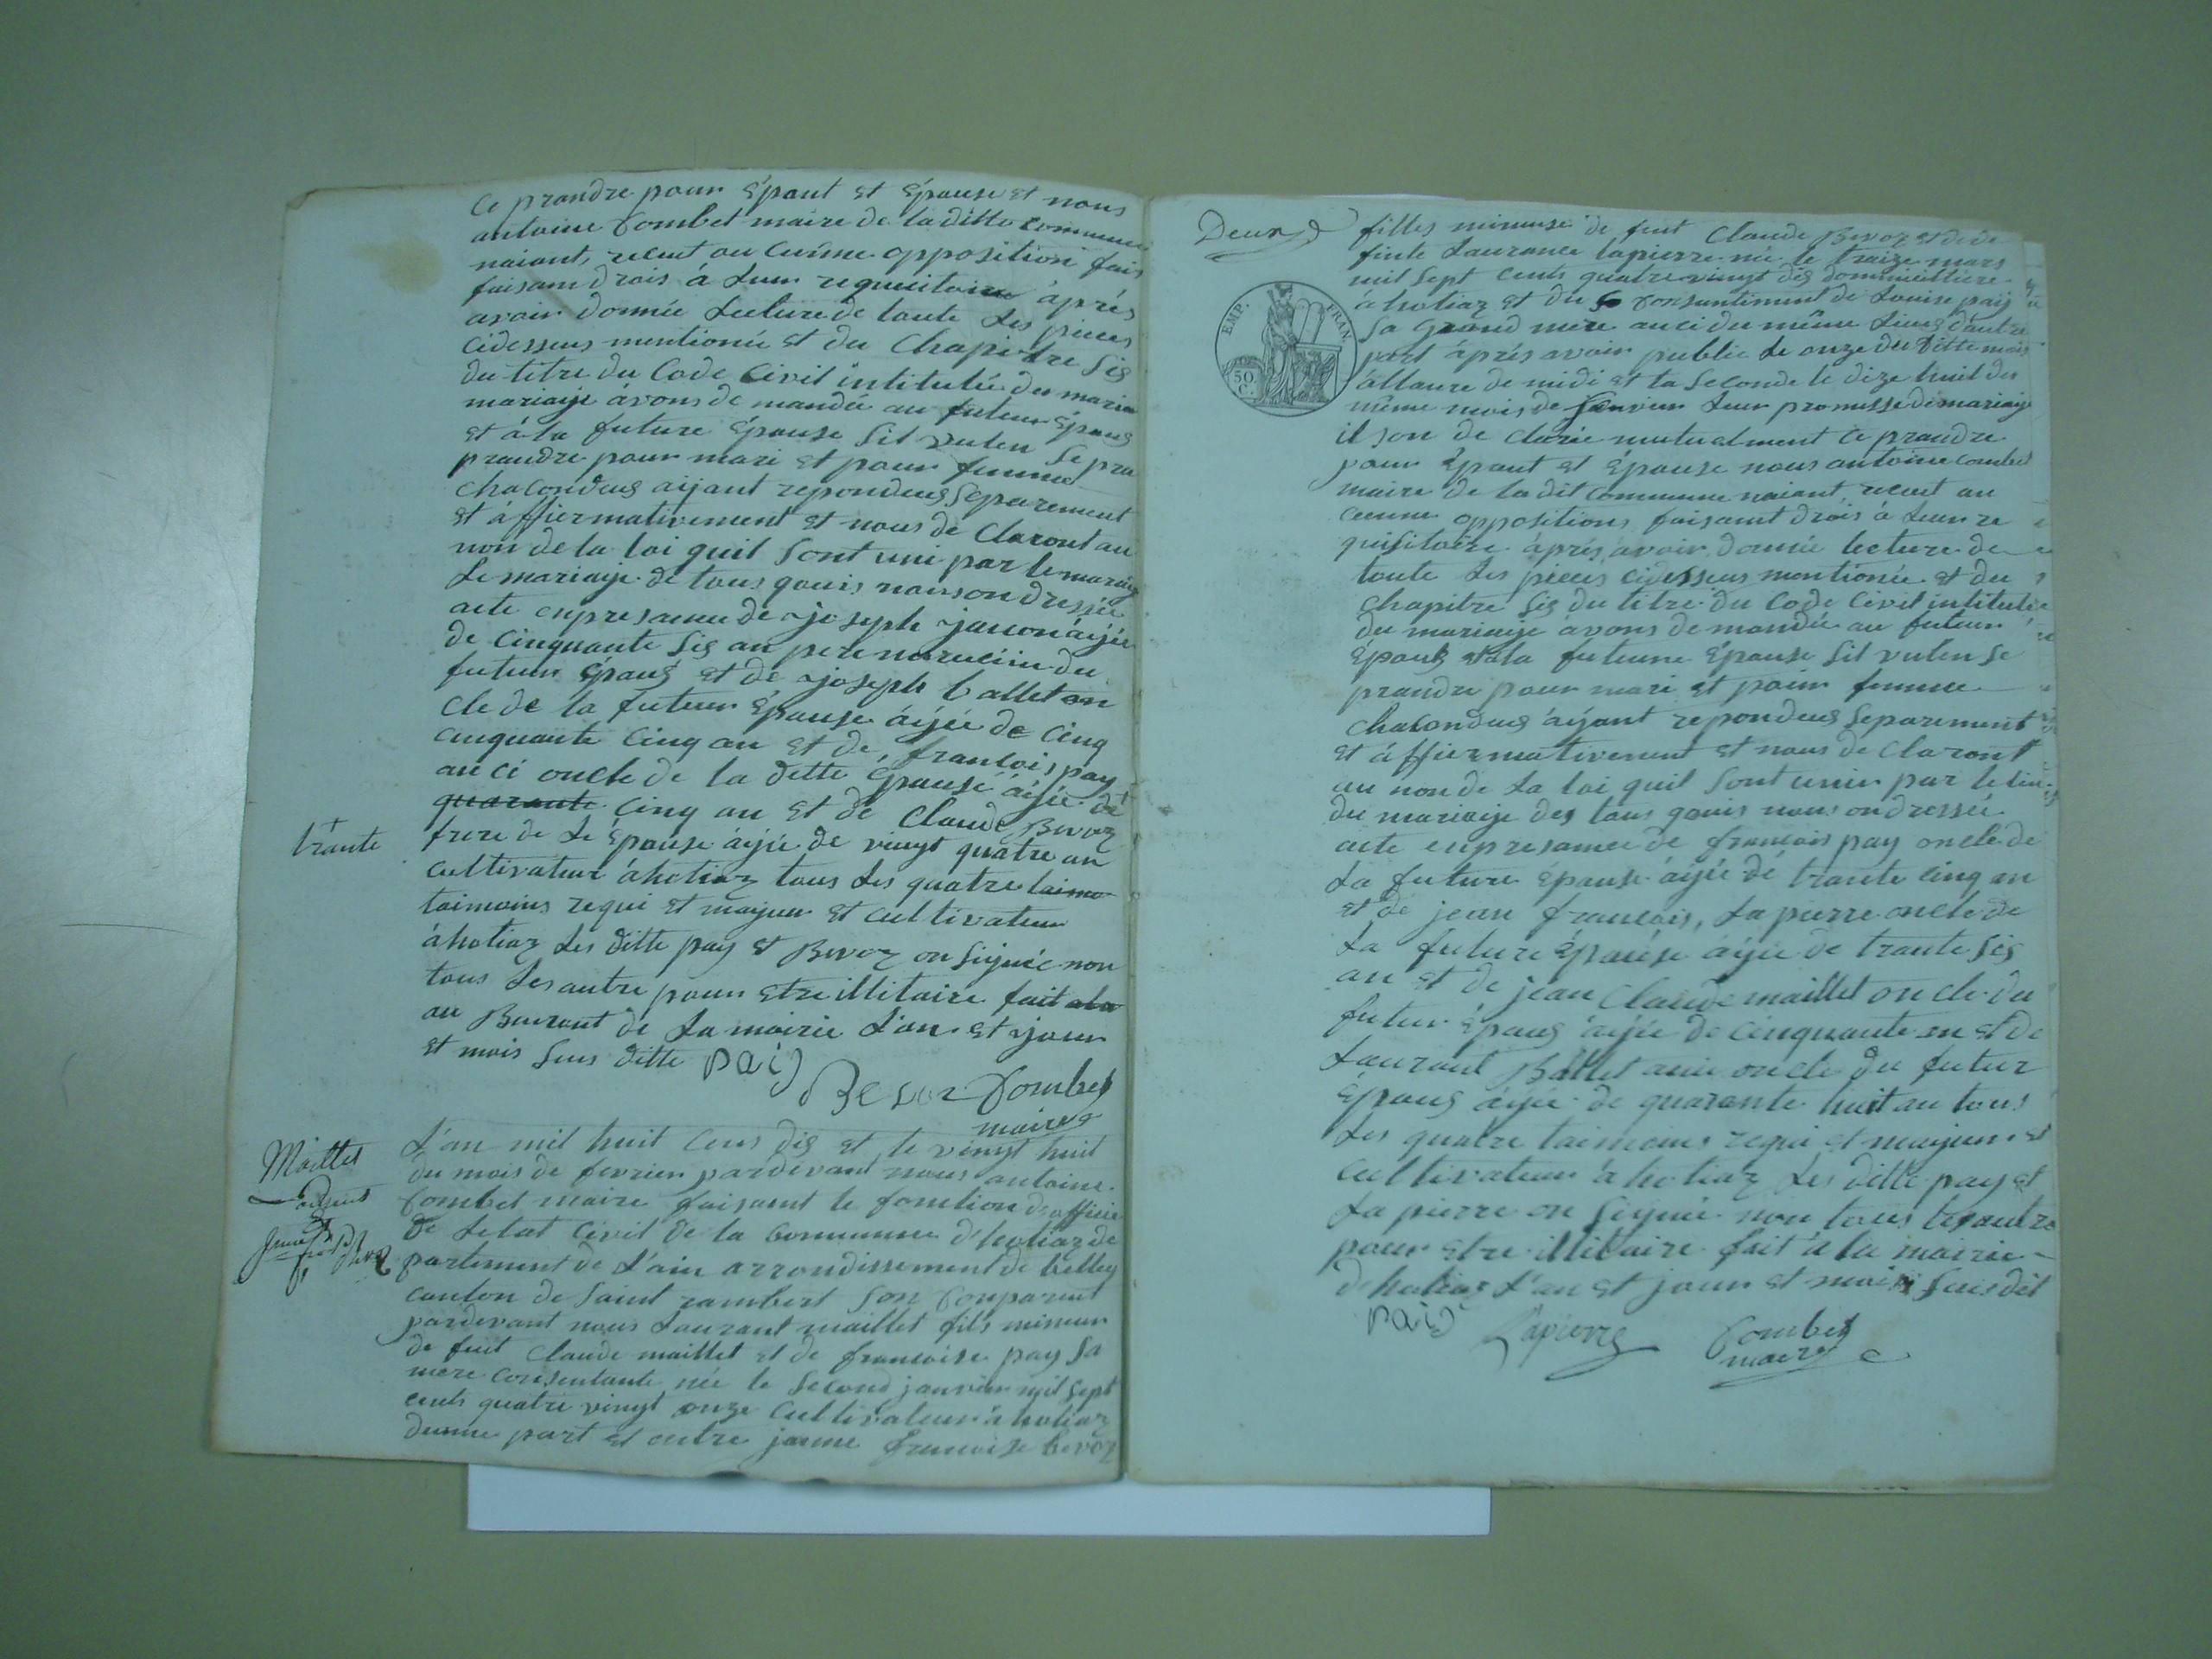 ce prandre pour Épout et Épouse et nous
antoine Combet maire de la ditte commune
naiant, recut au cunne opposition fais
faisam drois à Leur requisitoire áprés
avoir donnée Lecture de toute Les pieces
cidessus mentionée et du Chapitre sis
du titre du Code Civil intitulée du maria
mariaije ávons demandée au futeur Épous
et á la future Épouse sil vulen se pra
prandre pour mari et pour femme
chacondeus aijant repondeus separement
et áffiermativement et nous de Claront au
non de la loi quil sont uni par le mariaij
Le mariaije de tous quois nous on dressée
acte en presance de joseph jancon áijée
de Cinquante sis an pere nourucier du
futeur Épous et de joseph ballet on
cle de la futeur Épouse áijée de Cinq
cinquante cinq an et de francois pay
au ci oncle de la ditte épouse áijée dé
quarante cinq an et de Claude Bevoz
trante
frere de Le Épouse áijée de vingt quatre an
cultivateur áhotiaz tous Les quatre taimo
taimoins requi et majeur et cultivateur
áhotiaz Les ditte pay et Bevoz on signée non
tous Les autre pour etre illitaire fait ala
au Buraut de La mairie L'an et jour
et mois sus ditte pais
Bevoz Combet
maire
Maillet
Laurent
L'an mil huit cens dis et le vingt huit
du mois de fevrier pardevant nous antoine
Combet maire faisant le fonction d'officie
de Letat Civil de la Commune d'hotiaz de
partement de L'ain arrondissement de belley
canton de saint rambert son Comparut
pardevant nous Laurant maillet fils mineur
de feut Claude maillet et de francoise pay sa
mere consentante née le second janvier mil sept
cents quatre vingt onze cultivateur á hotiaz
dunne part et entre janne francoise bevoz
Deux
filles mineuse de feut Claude Bevoz et de de
feute Laurance lapierre née le traize mars
mil sept cents quatre vingt dis dommicilliere
à hotiaz et du consantiment de Louise pay
sa grand mere auci du même Lieus dautre
part áprés avoir publie le onze du ditte mois
á l'laure de midi et la seconde le dize huit du
même mois de janvier Leur promesse de mariaije
il son de clarée mutuelment ce prandre
pour Épout et Épouse nous antoine combet
maire de la dit commune naiant, recut au
ceunne oppositions faisant drois á Leur re
quisitoire áprés avoir donnée lecture de
toute Les pieces cidessus montionée et du
chapitre sis du titre du Code Civil intitulée
du mariaije ávons demandée au futeur
Épous et á la futeure Épouse sil vulen se
prandre pour mari et pour femme
chacondeus áijant repondeus separement
et áffiermativement et nous de claront
au non de La loi quil sont unir par le lien
du mariaije des tous quois nous on dressée
acte enpresance de francois pay oncle de
La future épouse áijée dé trante cinq an
et de jean francois, La pierre oncle de
La future Épouse áijée de trante sis
an et de jean Claude maillet oncle du
futur épous áijée de cinquante an et de
Laurant Ballet auci oncle du futur
Épous áijée de quarante huit an tous
Les quatre taimoins requi et maijeur et
cultivateur á hotiaz Les ditte pay et
La pierre on signée non tous les autre
pour etre illitaire fait á la mairie
d'hotiaz L'an et jour et mois sus dit
pais Lapierre Combet
maire
EMP. FRAN.
50
C.